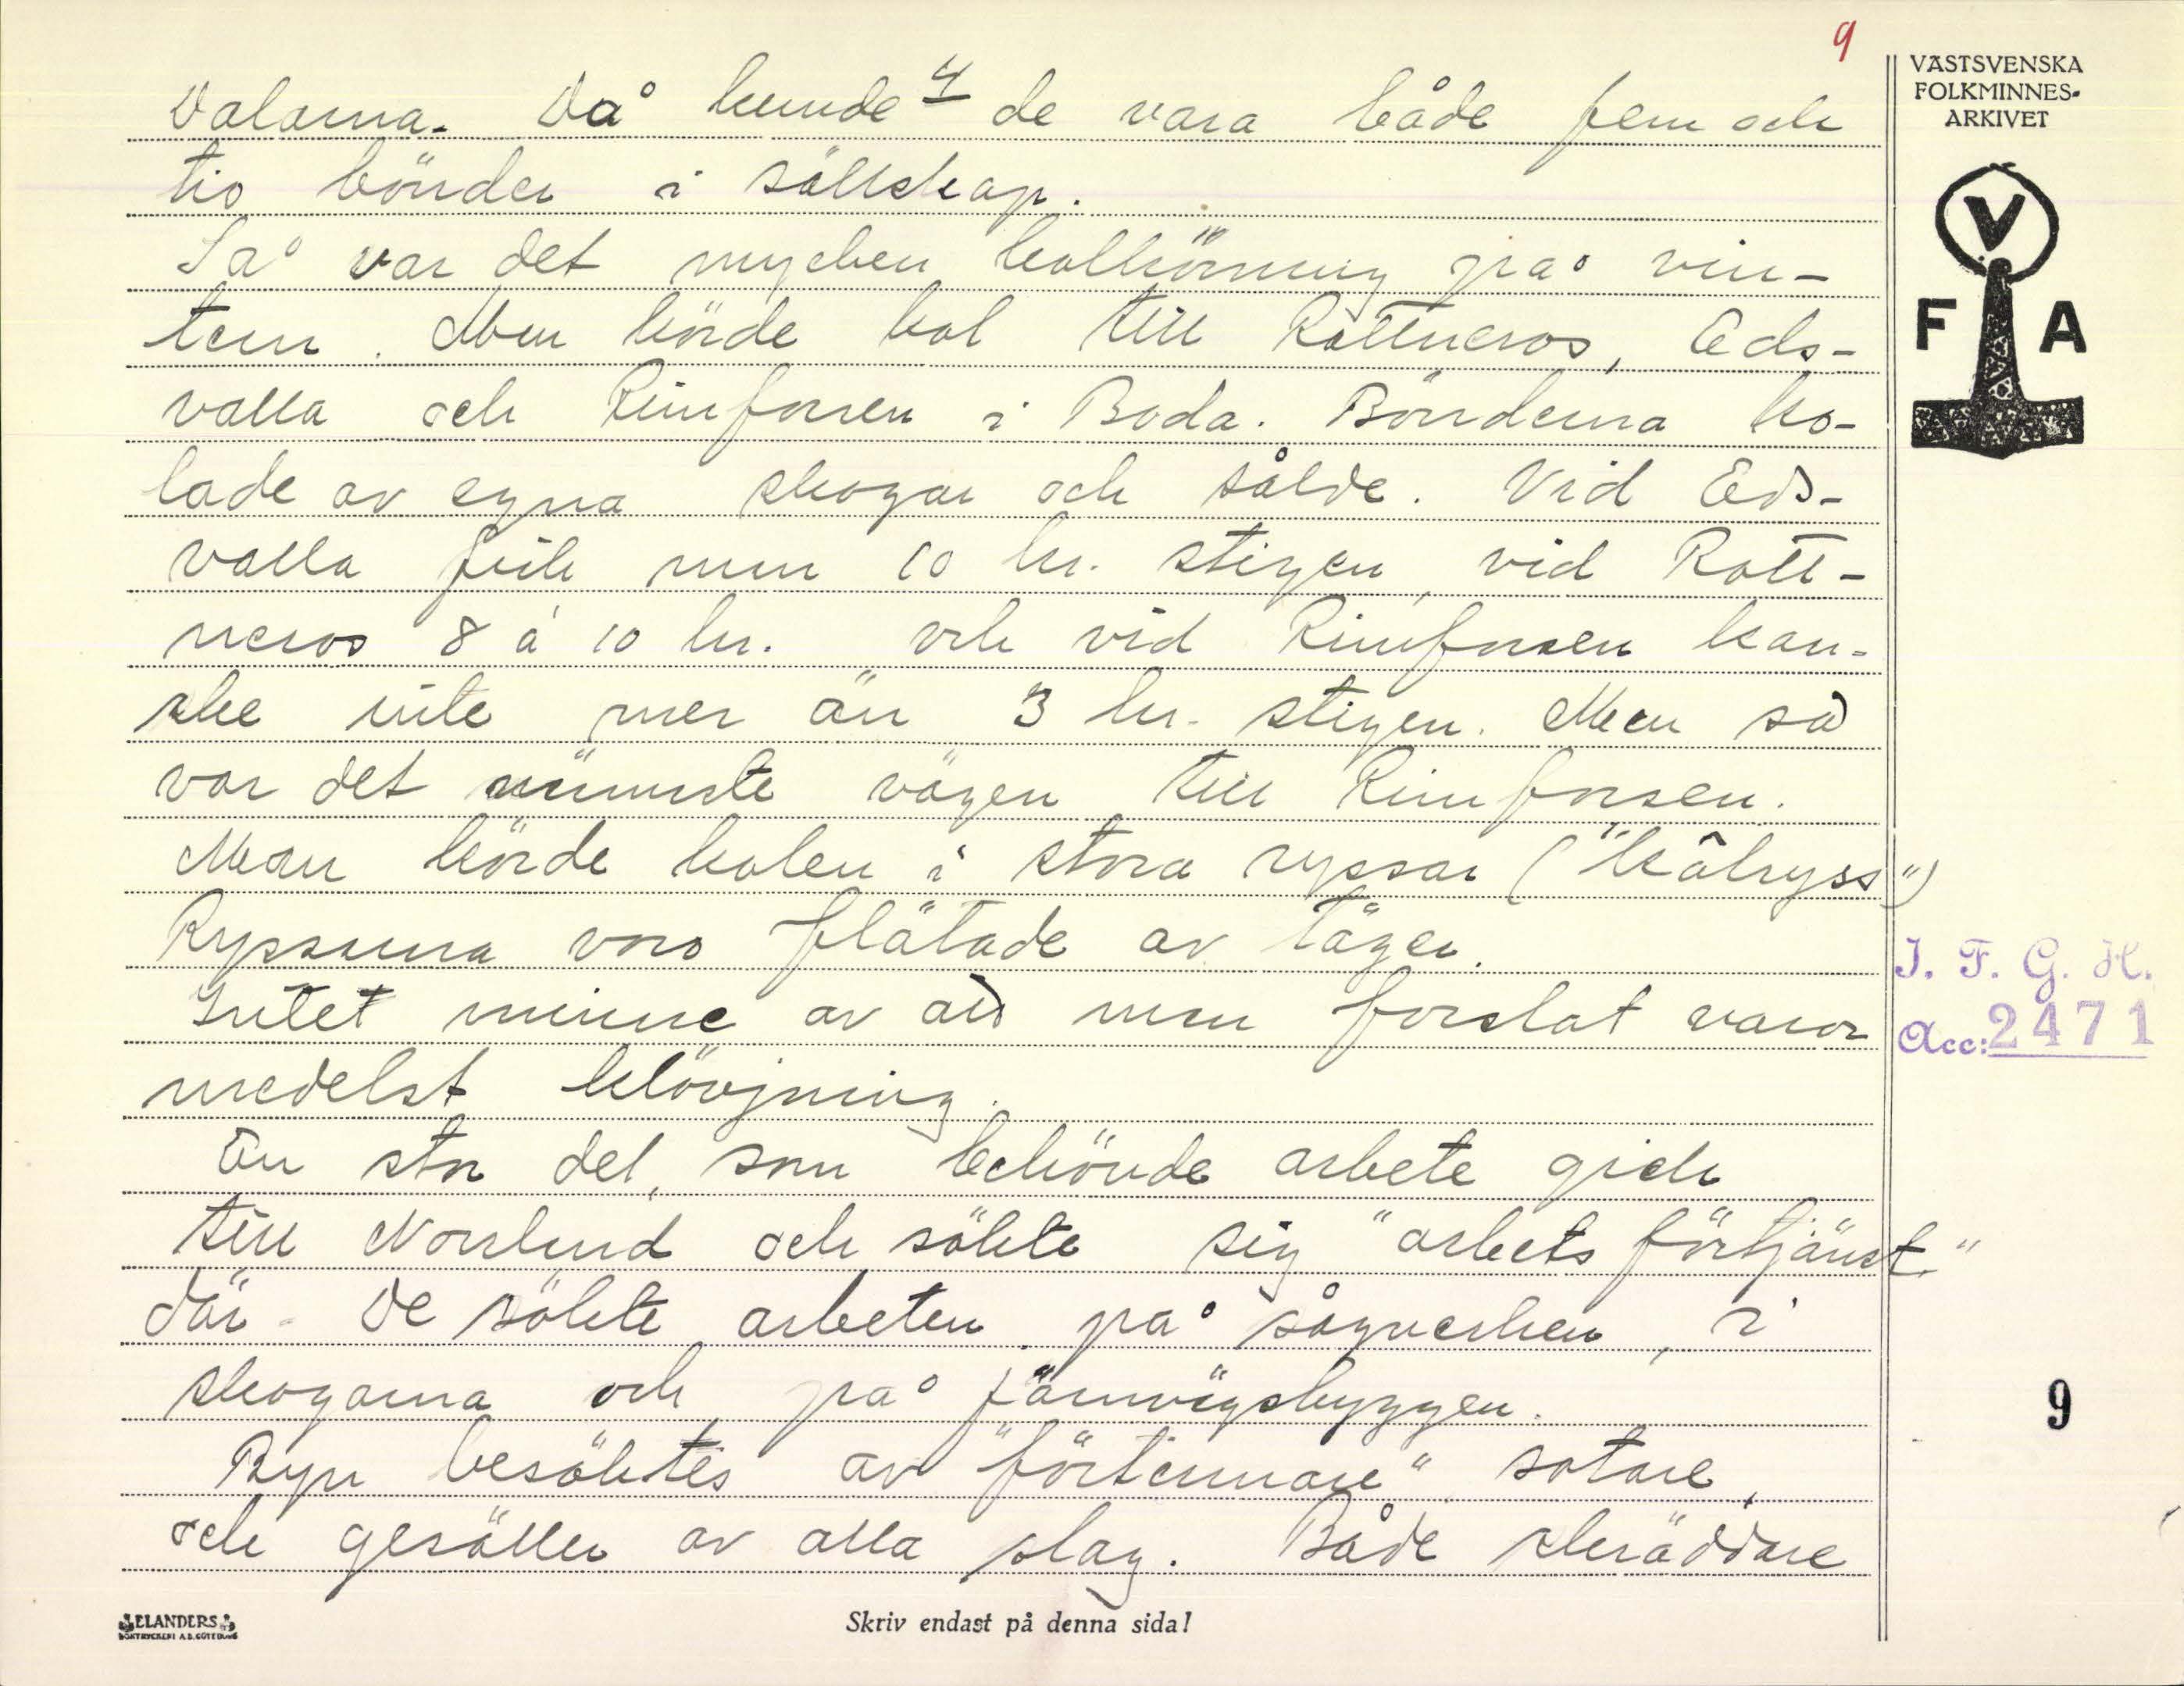 9
Dalarna. Då kunde 4 de vara både fem och
tio bönder i sällskap.
Så var det mycken kolkörning på vin-
tern. Man körde kol till Rottneros, Eds-
valla och Rinforsen i Boda. Bönderna ko-
lade av egna skogar och sålde. Vid Eds-
valla fick man 10 kr. stigen, vid Rott-
neros 8 á 10 kr. och vid Rinforsen kan-
ske inte mer än 3 kr. stigen. Men så
var det närmste vägen till Rinforsen.
Man körde kolen i stora ryssar ("kålryss")
Ryssarna voro flätade av täger.
Intet minne av att man forslat varor
medelst klövjning.
En stor del, som behövde arbete gick
till Norrland och sökte sig "arbetsförtjänst"
där. De sökte arbeten på sågverken, i
skogarna och på järnvägsbyggen.
Byn besöktes av "förtennare" sotare,
och gesäller av alla slag. Både skräddare
VÄSTSVENSKA
FOLKMINNES-
ARKIVET
V
F A
I. F. G. H.
Acc: 2471
9
ELANDERS
BOKTRYCKERI A.B. GÖTEBORG
Skriv endast på denna sida!